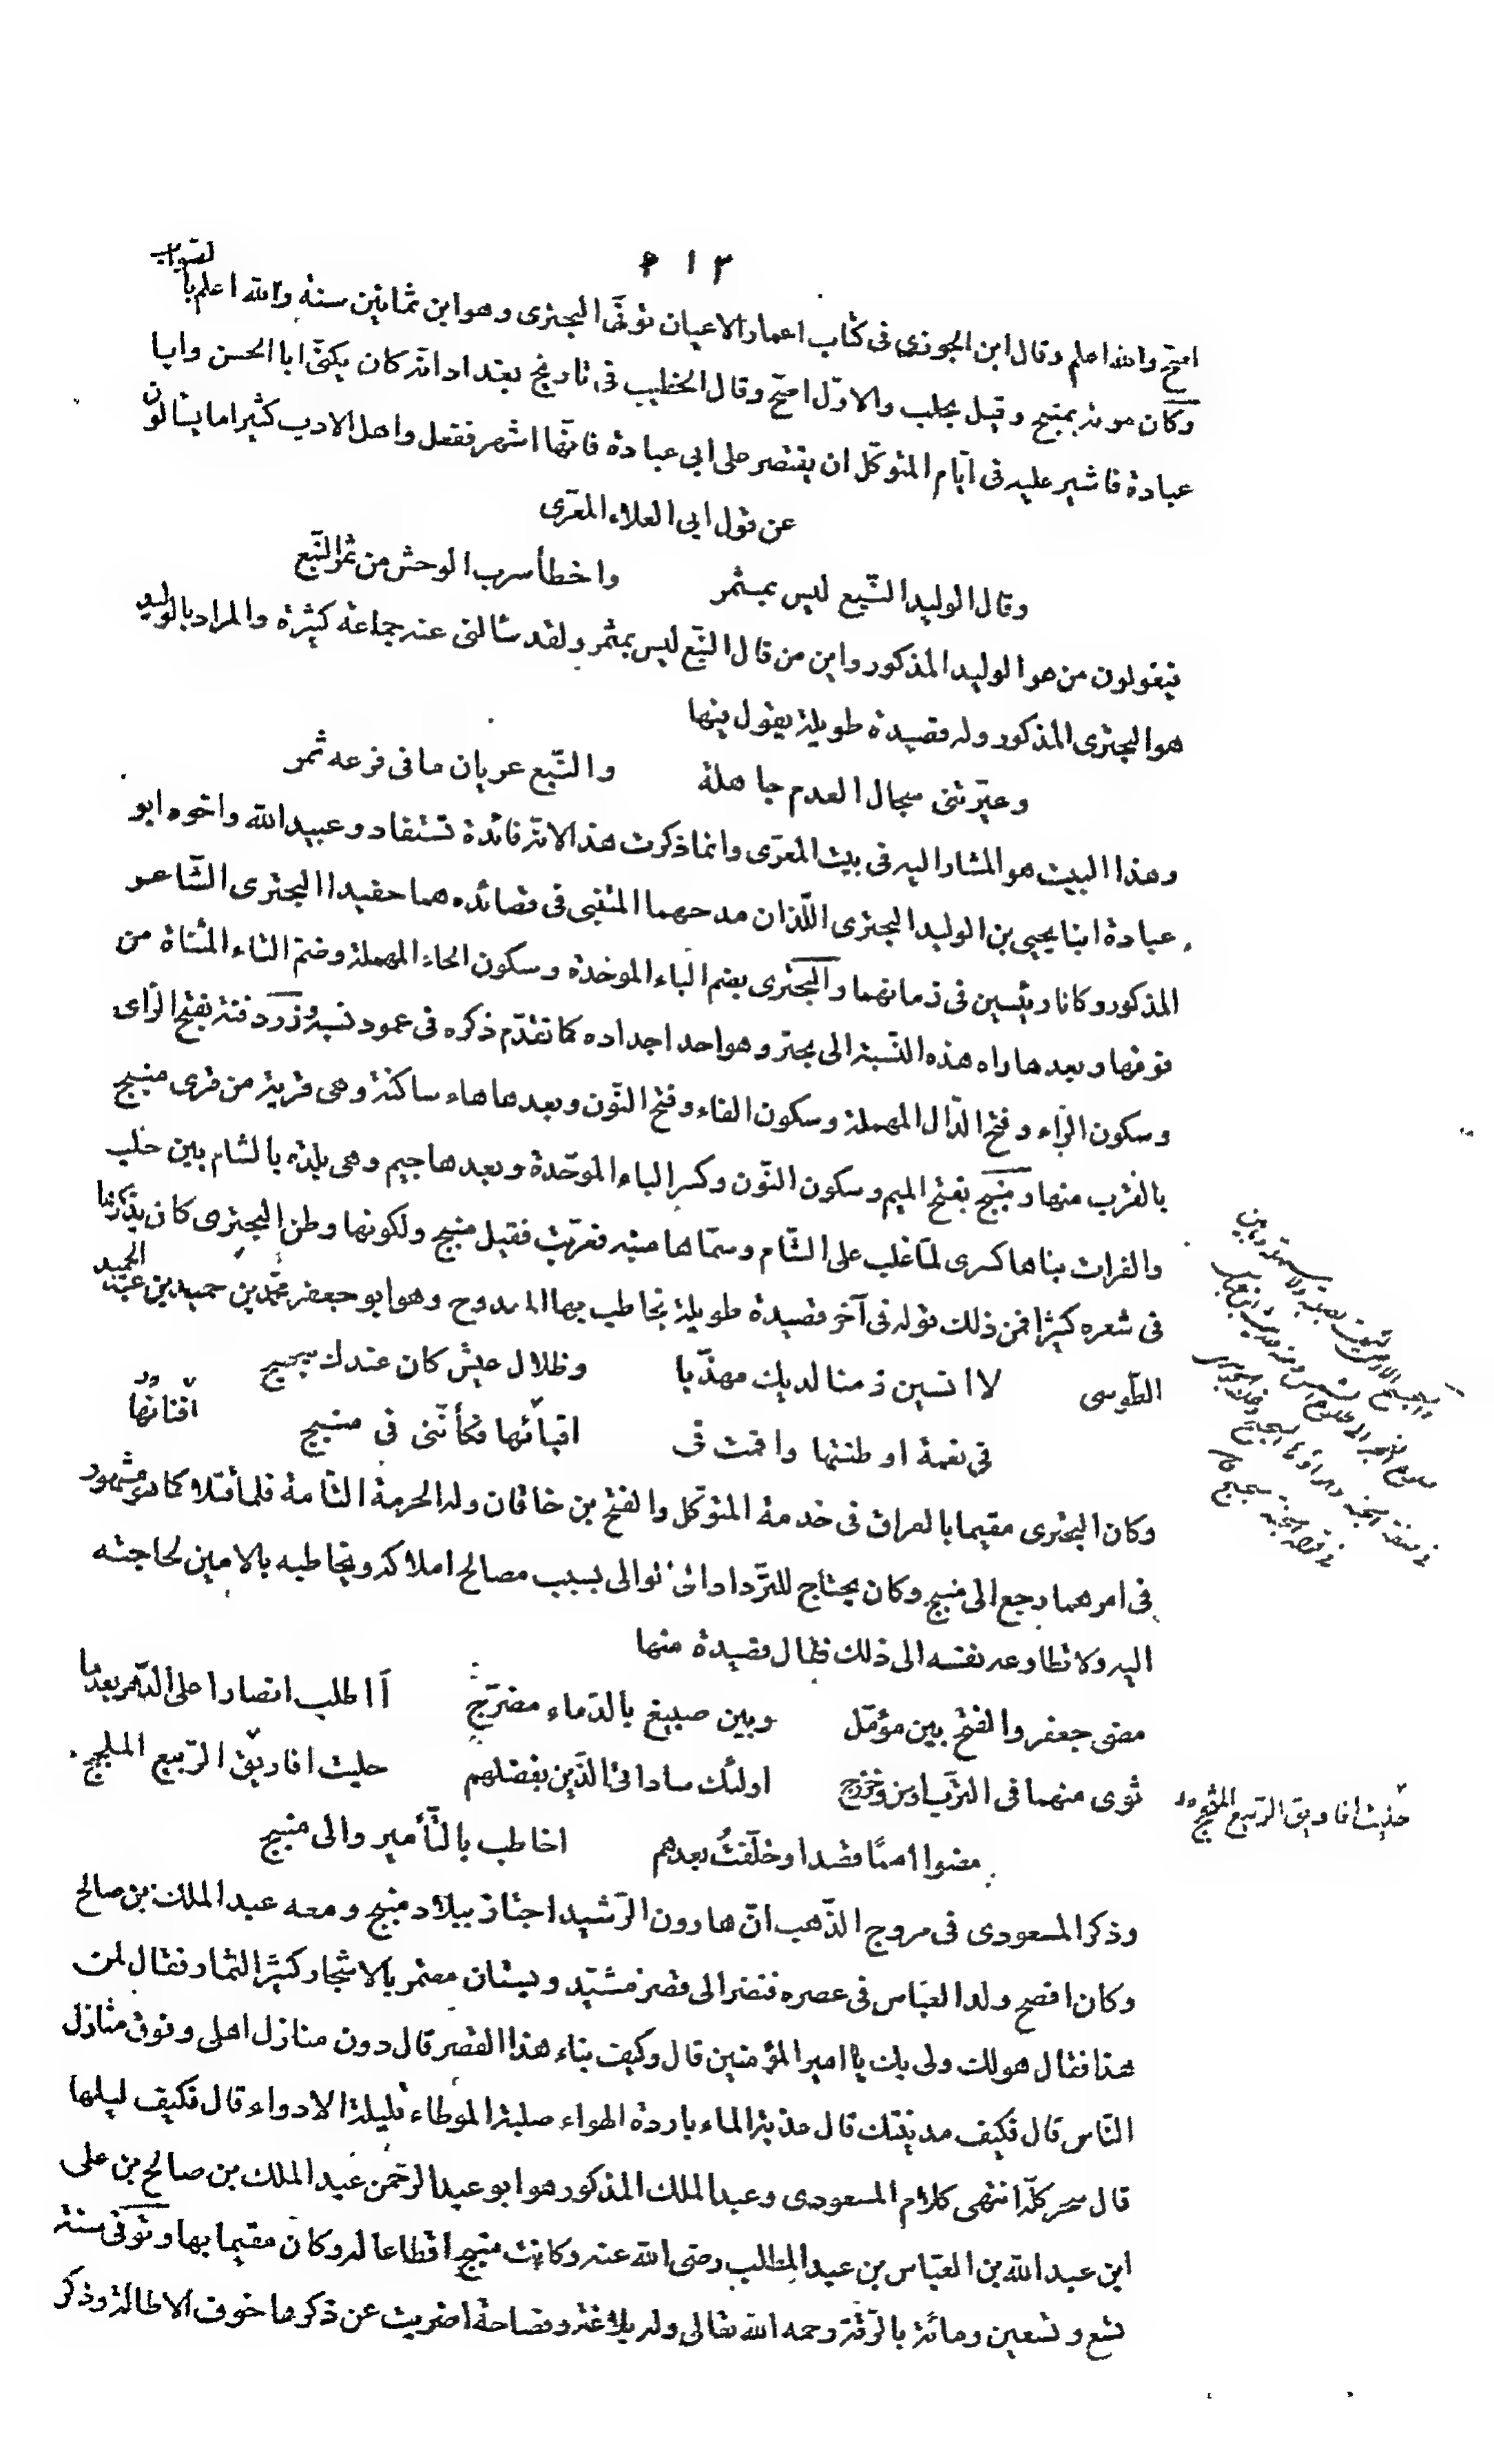 ٣١٤
اصح والله اعلم وقال ابن الجوزى فى كتاب اعمار الاعيان توفّى البحترى وهو ابن ثمانين سنة والله اعلم بالصّواب
وكان موته بمنبج وقيل بحلب والاوّل اصحّ وقال الخطيب فى تاريخ بغداد انّه كان يكنّى ابا الحسن وابا
عبادة فاشير عليه فى ايّام المتوكّل ان يقتصر على ابى عبادة فانّها اشهر ففعل واهل الادب كثيرا ما يسألون
عن قول ابى العلاء المعرّى
وقال الوليد النّبع ليس بمثمر واخطأ سرب الوحش من ثمر النّبع
فيقولون من هو الوليد المذكور واين من قال النّبع ليس بمثمر ولقد سألنى عنه جماعة كثيرة والمراد بالوليد
هو البحترى المذكور وله قصيدة طويلة يقول فيها
وعيّرتنى سجال العدم جاهلة والنّبع عريان ما فى فرعه ثمر
وهذا البيت هو المشار اليه فى بيت المعرّى وانما ذكرت هذا لانّه فائدة تستفاد وعبيد الله واخوه ابو
عبادة ابنا يحيى بن الوليد البحترى اللّذان مدحهما المتنبى فى قصائده هما حفيدا البحترى الشّاعر
المذكور وكانا رئيسين فى زمانهما والبحترى بضم الباء الموحّدة وسكون الحاء المهملة وضمّ التاء المثنّاة من
فوقها وبعدها راء هذه النّسبة الى بحتر وهو احد اجداده كما تقدّم ذكره فى عمود نسبه وزردفنة بفتح الزّاى
وسكون الرّاء وفتح الدّال المهملة وسكون الفاء وفتح النّون وبعدها هاء ساكنة وهى قرية من قرى منبج
بالقرب منها ومنبج بفتح الميم وسكون النّون وكسر الباء الموحّدة وبعدها جيم وهى بلدة بالشام بين حلب
والفرات بناها كسرى لمّا غلب على الشّام وسمّاها منبه فعرّبت فقيل منبج ولكونها وطن البحترى كان يذكرها
فى شعره كثيرا فمن ذلك قوله فى آخر قصيدة طويلة يخاطب بها الممدوح وهو ابو جعفر محمّد بن حميد بن عبد الحميد
الطّوسى لا انسين زمنا لديك مهذّبا وظلال عيش كان عندك سجسج
فى نعمة اوطنتها واقمت فى افيائها فكأنّنى فى منبج افنانها
وكان البحترى مقيما بالعراق فى خدمة المتوكّل والفتح بن خاقان وله الحرمة التّامة فلما قتلا كما هو مشهور
فى امرهما رجع الى منبج وكان يحتاج للتّرداد الى الوالى بسبب مصالح املاكه ويخاطبه بالامير لحاجته
اليه ولا تطاوعه نفسه الى ذلك فقال قصيدة منها
مضى جعفر والفتح بين مؤمّل وبين صبيغ بالدّماء مضرّج أاطلب انصارا على الدّهر بعدما
ثوى منهما فى التّرب اوسى وخزرج اولئك ساداتى الّذين بفضلهم حلبت افاويق الرّبيع الملجج
حلبت افاويق الرّبيع المثجج
مضوا امما قصدا وخلّفتُ بعدهم اخاطب بالتّأمير والى منبج
وذكر المسعودى فى مروج الذّهب انّ هارون الرّشيد اجتاز ببلاد منبج ومعه عبد الملك بن صالح
وكان افصح ولد العبّاس فى عصره فنظر الى قصر مشيّد وبستان معتمر بالاشجار كثير الثمار فقال لمن
هذا فقال هو لك ولى بك يا امير المؤمنين قال وكيف بناء هذا القصر قال دون منازل اهلى وفوق منازل
النّاس قال فكيف مدينتك قال عذبة الماء باردة الهواء صلبة الموطاء قليلة الادواء قال فكيف ليلها
قال سحر كلّه انتهى كلام المسعودى وعبد الملك المذكور هو ابو عبد الرّحمن عبد الملك بن صالح بن على
ابن عبد الله بن العبّاس بن عبد المطّلب رضى الله عنه وكانت منبج اقطاعا له وكان مقيما بها وتوفى سنة
تسع وتسعين ومائة بالرّقّة رحمه الله تعالى وله بلاغة وفصاحة اضربت عن ذكرها خوف الاطالة وذكر